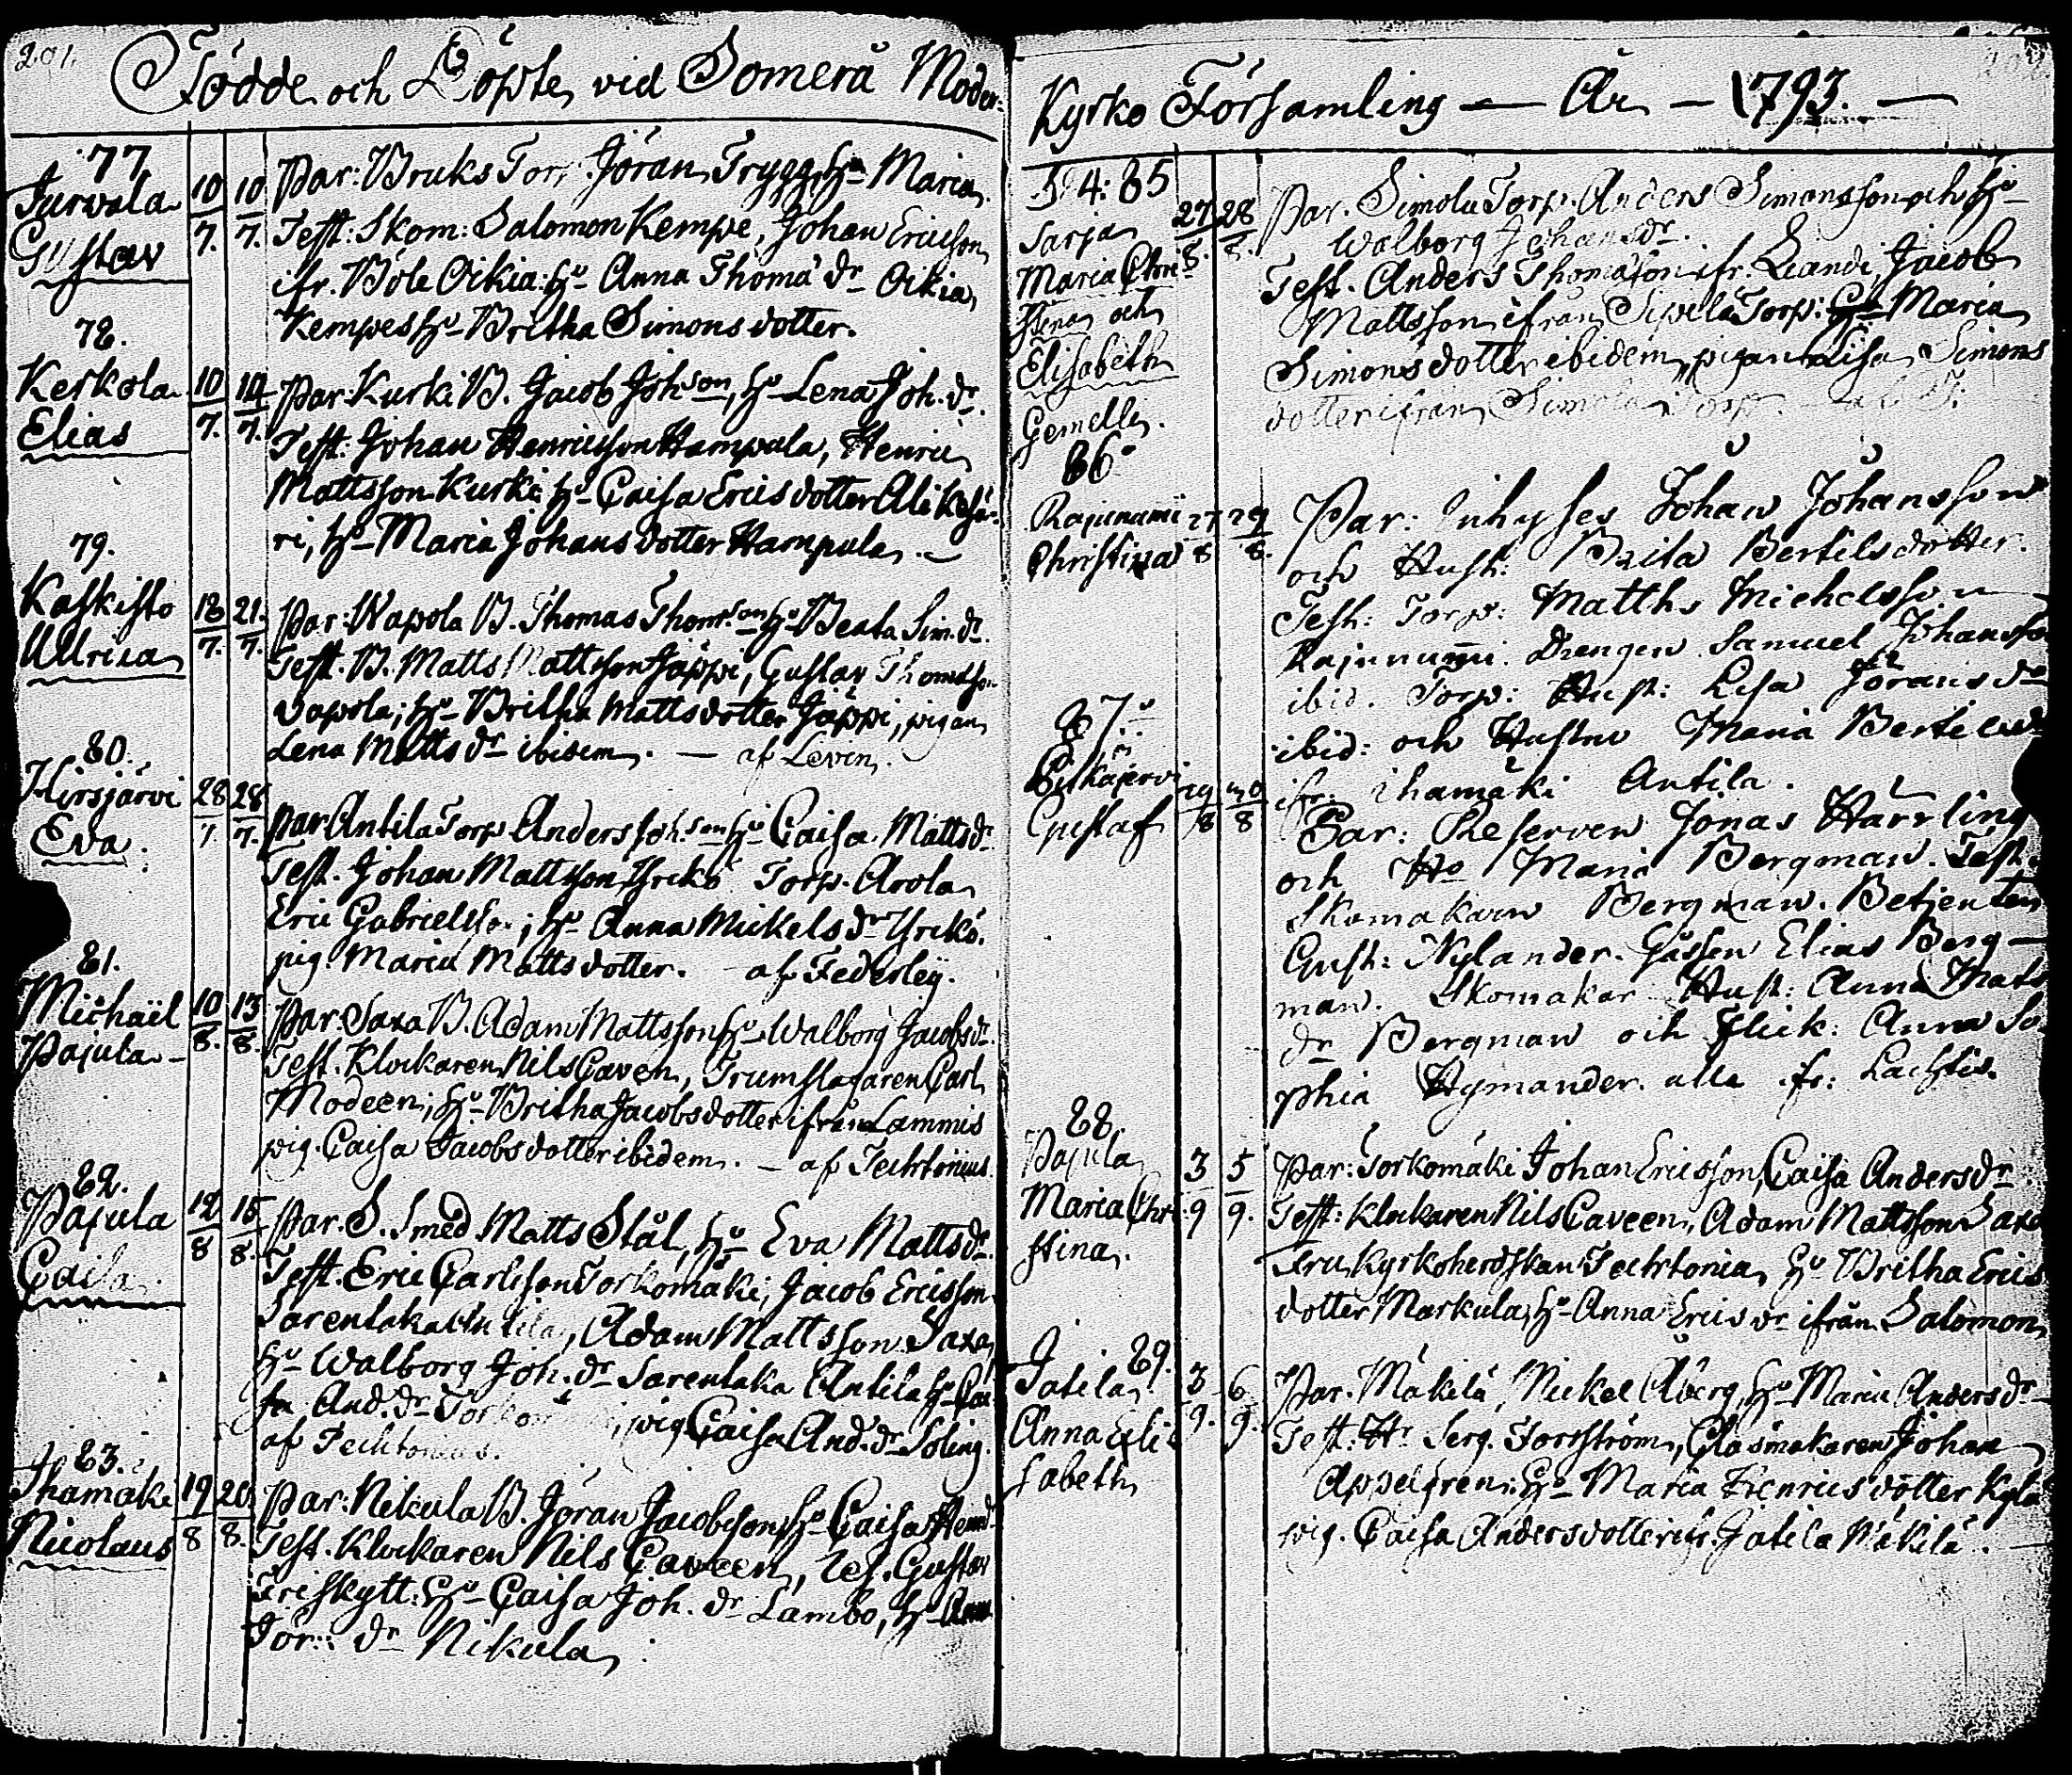 201.
Födde och Döpte vid Somerå Moder-
77
Jurvala
Gustav
10/7. 10/7.
Par: Bruks Torp. Jöran Trygg, Hu Maria
Test: Skom: Salomon Kempe, Johan Ericsson
ifr. Böle Oikia: Hu Anna Thomæ dr Oikia,
Kempes Hu Britha Simons dotter.
78.
Kerkola
Elias
10/7. 14/7.
Par: Kurki B. Jacob Johson, Hu Lena Joh. dr.
Test: Johan Henricsson Hampula, Henric
Mattsson Kurki; Hu Caisa Erics dotter Alikesä-
ri, Hu Maria Johans dotter Hampula. —
79.
Kaskisto
Ulrica
18/7. 21./7.
Par: Wapola B. Thomas Thom.son Hu Beata Sim. dr.
Test. B. Matts Mattsson Jäppi, Gustav Thomasson
Vapola; Hu Britha Matts dotter Jäppi, pigan
Lena Matts dr ibidem. — af Leven.
80.
Hirsjärvi
Eva.
28/7. 28/7.
Par Antila Torp Anders Joh.son Hu Caisa Matts dr
Test. Johan Mattsson Yrekö Torp. Arola
Eric Gabrielsso.; Hu Anna Mickels dr Yrekö.
pig. Maria Matts dotter. af Federley.
81.
Michaël
Pajula -
10/8. 13/8.
Par: Saxa B. Adam Mattsson Hu Walborg Jacobs dr.
Test. Klockaren Nils Caven, Trumslagaren Carl
Modeen; Hu Britha Jacobs dotter ifrån Lammis
pig. Caisa Jacobs dotter ibidem. — af Techtonius.
82.
Pajula
Caisa.
12/8 15/8.
Par. S. Smed Matts Stål, Hu Eva Matts dr.
Test. Eric Carlsson Torkomäki, Jacob Ericsson
Sarentaka Antila, Adam Mattsson Saxa,
Hu Walborg Joh. dr Sarentaka Antila Hu Cai-
sa And. dr Torkomäki, pig Caisa And. dr Soling.
af Techtonius.
83.
Ihamäki
Nicolaus
19/8 20/8.
Par: Nikula B. Jöran Jacobsson Hu Caisa Hend
Test. Klockaren Nils Caveen, Res. Gustav
Friskytt: Hu Caisa Joh. dr Lambo, Hu Anna
Jör: dr Nikula.
Kyrko Församling — År — 1793. —
84: 85
Sarja
Maria Chri
stina och
Elisabeth
Gemelli.
27/8. 28/8.
Par. Simola Torp. Anders Simonsson och Hu
Walborg Johans dr.
Test. Anders Thomasson ifr. Liandi, Jacob
Mattsson ifrån Sipilä Torp: Hu Maria
Simons dotter ibidem, pigan Lisa Simons
dotter ifrån Simola Torp.
86.
Rajunumi
Christina
27/8 29/8.
Par: Inhyses Johan Johansson
och Hust: Brita Bertils dotter.
Test: Torp: Matths Michelsson
Rajunumi. Drengen Samuel Johansson
ibid. Torp: Hust: Lisa Jörans dr
ibid: och Hustru Maria Bertils dr
ifr: Ihamäki Antila.
87.
Pitkäjervi
Gustaf
29/8 30/8
Par: Reserven Jonas Härrling
och Hu Maria Bergman. Test.
Skomakarn Bergman. Betjenten
Gust: Nylander. Gåssen Elias Berg-
man. Skomakar Hust: Anna Mats
dr Bergman och Flick: Anna So-
phia Hymander. alla ifr: Lachtis.
88.
Pajula
Maria Chri:
stina.
3/9 5/9.
Par: Torkomäki Johan Ericsson, Caisa Anders dr.
Test: Klockaren Nils Caveen, Adam Mattsson Saxa
Fru Kyrkoherdskan Techtonia, Hu Britha Erics
dotter Markula, Hu Anna Erics dr ifrån Salomon,
89.
Jatila
Anna Eli
sabeth
3/9. 6/9.
Par. Mäkilä, Mickel Åberg, Hu Maria Anders dr
Test: Hr Serg. Forsström, Glasmakaren Johan
Appelgren: Hu Maria Henrics dotter Kylä
pig. Caisa Anders dotter ifr. Jatila Mäkilä. —